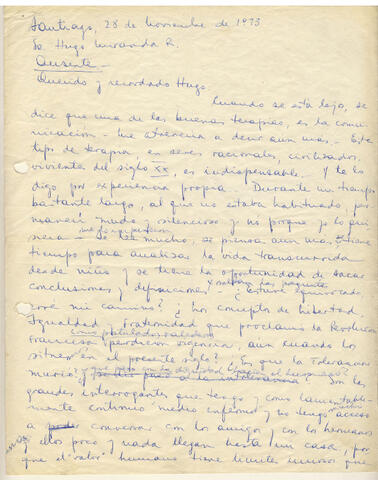 Santiago, 28 de Noviembre de 1973
Sr. Hugo Miranda R.
Presente
Querido y recordado Hugo.
Cuando se está lejos, se
dice que una de las buenas terapias, es la comu-
nicación - me atrevería a decir aun mas - Este
tipo de terapia en seres racionales, civilizados,
viviente del siglo XX, es indispensable. Y te lo
digo por experiencia propia. Durante un tiempo
bastante largo, al que no estaba habituado, per-
manecí mudo y silencioso y no porque yo lo qui-
siera - Se lee mucho, se piensa aun mas. Se tiene
tiempo para analizar la vida transcurrida
desde niño y se tiene la oportunidad de sacar
conclusiones y y muchas hay preguntas - ¿Estaré equivocado
erré mi camino? ¿Los conceptos de Libertad,
Igualdad y Fraternidad que proclamó la Revolución
Francesa como postulados valederos perdieron vigencia, aun cuando los
sitúen en el presente siglo? ¿Es que la Tolerancia
murió? ¿ y qué pasó con la dignidad y el respeto? Son las
grandes interrogantes que tengo y como lamentable-
mente continuo medio enfermo y no tengo mucho
acceso a conversar con los amigos, con los hermanos
y ellos poco y nada llegan hasta mi casa, por
que el "valor" humano tiene limites